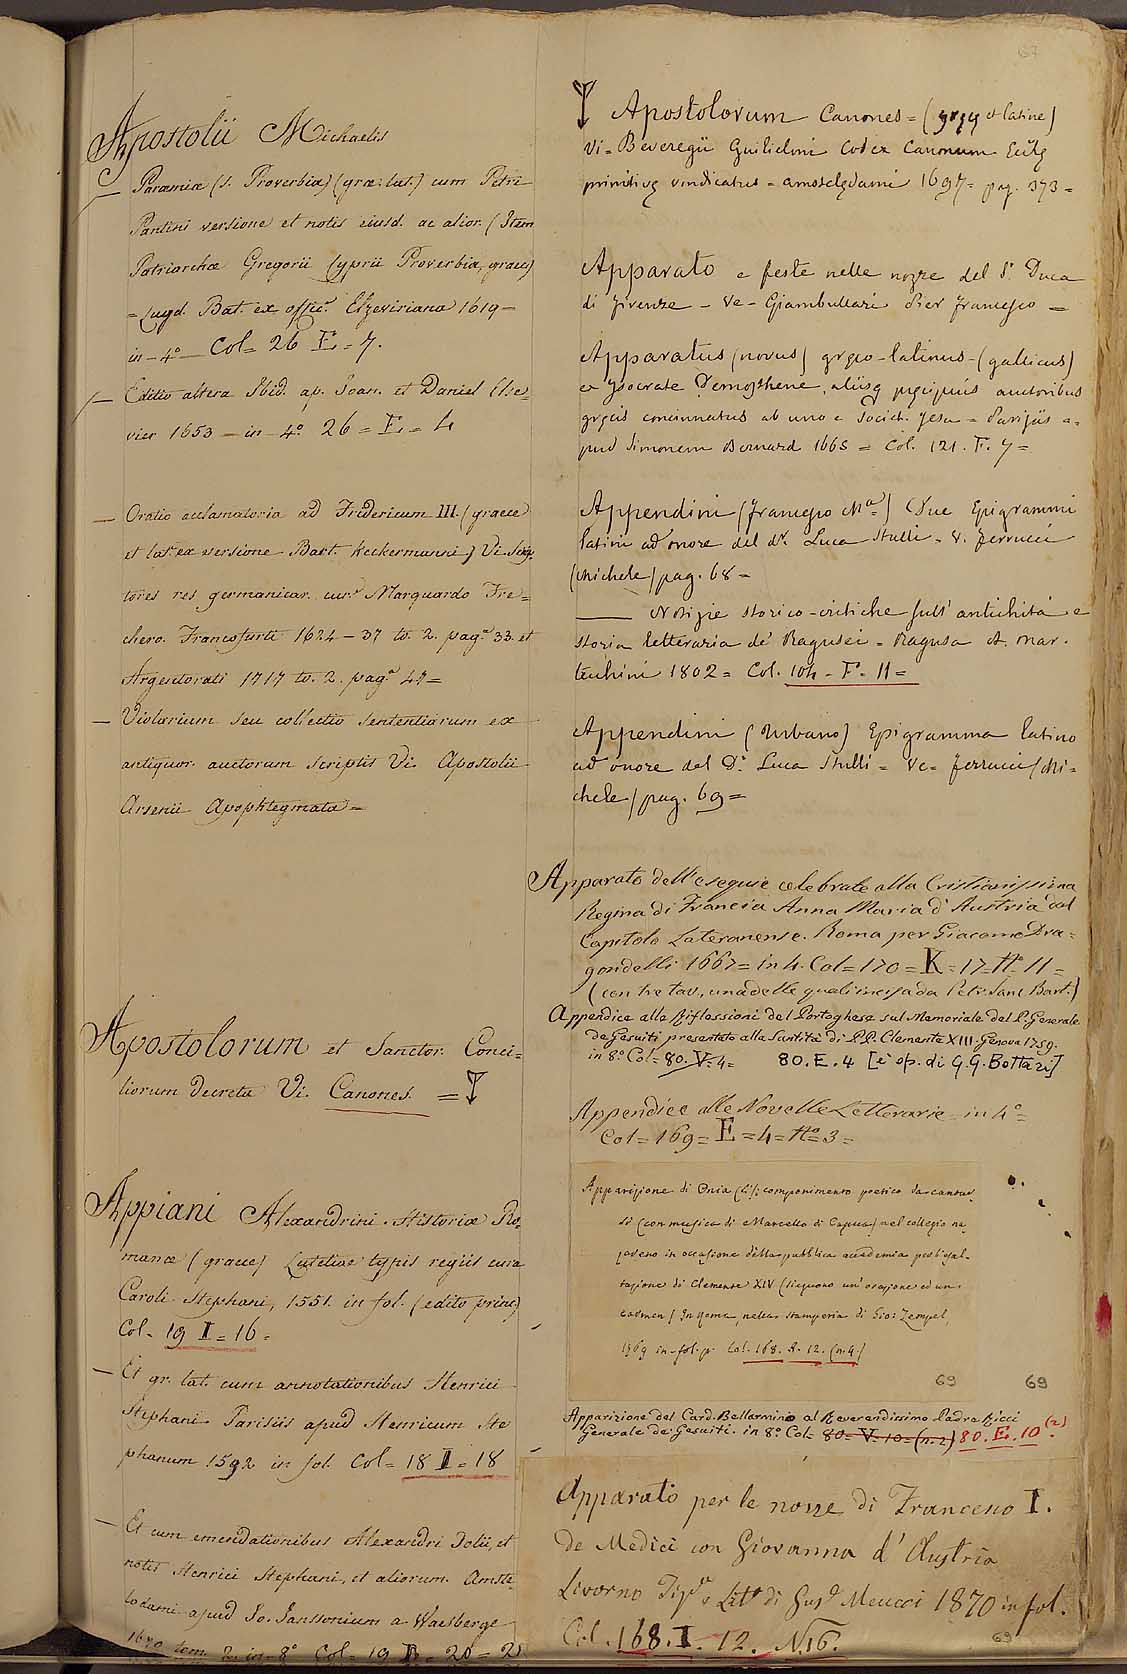 Apostolii Michaelis
— Paræmiæ (s. Proverbia) (græ: lat.) cum Petri
Pantini versione et notis eiusd. ac alior. (Item
Patriarchæ Gregorii Cyprii Proverbia, græce)
= Lugd. Bat. ex offic.ª Elzeviriana 1619 —
in-4º — Col= 26 E = 7.
— Editio altera Ibid. ap. Joan. et Daniel Else=
vier 1653 — in — 4º. 26 = E = 4
— Oratio acclamatoria ad Fridericum III. (graece
et lat. ex versione Bart. Keckermanni) Vi. Scrip
tores res germanicar. cur.e Marquardo Fre=
hero. Francofurti 1624 — 37 to. 2. pag.ª 33. et
Argentorati 1717 to. 2. pag.ª 47 =
— Violarium seu collectio sententiarum ex
antiquor. auctorum scriptis Vi. Apostolii
Arsenii Apophtegmata =
Apostolorum et Sanctor. Conci=
liorum decreta Vi. Canones. =
Appiani Alexandrini. Historiæ Ro=
manæ (graece) Lutetiae typis regiis cura
Caroli Stephani, 1551. in fol. (editio princ)
Col. 19 I = 16 =
— Et gr. lat. cum annotationibus Henrici
Stephani Parisiis apud Henricum Ste
phanum 1592 in fol. Col= 18 I = 18
— Et cum emendationibus Alexandri Tolii, et
notis Henrici Stephani, et aliorum. Amste=
lodami apud Jo. Janssonium a Waesberge
1670 tom. 2. in = 8º Col= 19 B = 20 = 21
67
Apostolorum Canones = (gręę et latine)
Vi= Beveregii Guilielmi Codex Canonum Eccłę
primitivę vindicatus = amstelędami 1697 = pag. 373 =
Apparato e feste nelle nozze del S.r Duca
di firenze — Ve = Giambullari Pier francesco =
Apparatus (novus) gręco-latinus = (gallicus)
ex Isocrate Demosthene, aliisq pręcipuis auctoribus
gręcis concinnatus ab uno e Societ. Jesu = Parisiis a=
pud Simonem Bernard 1665 = Col. 121. F. 7 =
Appendini (francesco Mª) Due Epigrammi
latini ad onore del dr. Luca Stulli = V. ferrucci
(Michele) pag. 68 =
— Notizie storico-critiche sull' antichità e
storia letteraria de' Ragusei = Ragusa A. Mar.
techini 1802 = Col. 104 = F. 11 =
Appendini (Urbano) Epigramma latino
ad onore del D.r Luca Stulli = Ve= ferrucci (Mi=
chele) pag. 69 =
Apparato dell'esequie celebrate alla Cristianissima
Regina di Francia Anna Maria d'Austria dal
Capitolo Lateranense. Roma per Giacomo Dra=
gondelli 1667 = in 4. Col= 170 = K = 17 = Nº 11 =
(con tre tav., una delle quali incisa da Petr. Sanc Bart.)
Appendice alle Riflessioni del Portoghese sul Memoriale del P. Generale
de Gesuiti presentato alla Santità di P.P. Clemente XIII. Genova 1759.
in 8º Col= 80. V = 4 = 80. E. 4 [è op. di G. G. Bottari]
Appendice alle Novelle Letterarie in 4º =
Col= 169 = E = 4 = Nº = 3 =
Apparizione di Onia (L'): componimento poetico da cantar
si (con musica di Marcello di Capua) nel collegio na
zareno in occasione della pubblica accademia per l'esal=
tazione di Clemente XIV (Sieguono un' orazione ed un
carmen) In Roma, nella stamperia di Gio: Zempel,
1769 in-fol. p. Col. 168. I. 12. (n. 4)
69
69
Apparizione del Card. Bellarmino al Reverendissimo Padre Ricci
Generale de Gesuiti. in 8º Col= 80 = V = 10 = (n. 2) 80. E. 10 (2).
Apparato per le nozze di Francesco I.
de Medici con Giovanna d'Austria
Livorno Tip.a e Lit.a di Gus.o Meucci 1870 in fol.
Col. 168. I. 12. N. 16.
69